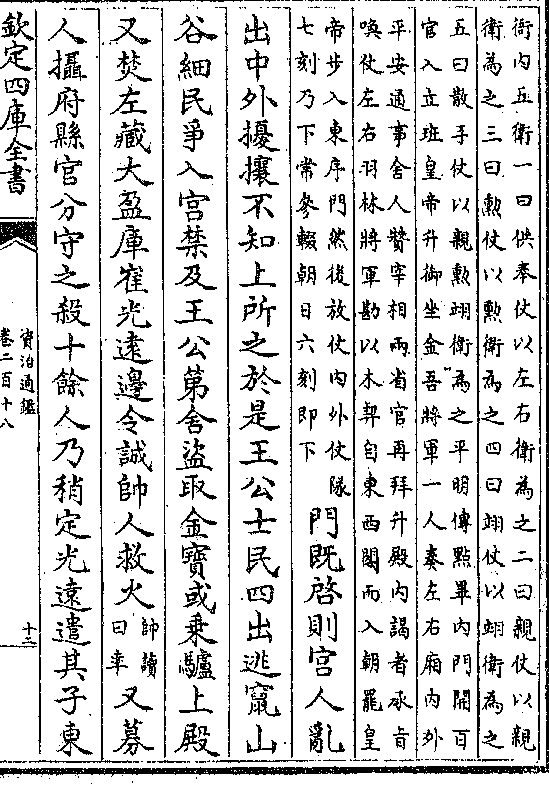 衙内五衛一曰供奉仗以左右衛為之二曰親仗以親
衛為之三曰勲仗以勲衛為之四曰翊仗以翊衛為之
五曰散手仗以親勲翊衛為之平明傳點畢内門開百
官入立班皇帝升御坐金吾將軍一人奏左右廂内外
平安通事舍人贊宰相兩省官再拜升殿内謁者承旨
喚仗左右羽林將軍勘以木契自東西閤而入朝罷皇
帝步入東序門然後放仗内外仗隊
七刻乃下常參輟朝日六刻即下
門既啓則宫人亂
出中外擾攘不知上所之於是王公士民四出逃竄山
谷細民爭入宫禁及王公第舍盜取金寶或乗驢上殿
又焚左藏大盈庫崔光遠邊令誠帥人救火
帥讀
曰率
又募
人攝府縣官分守之殺十餘人乃稍定光遠遣其子東
欽定四庫全書
資治通鑑
卷二百十八
十三